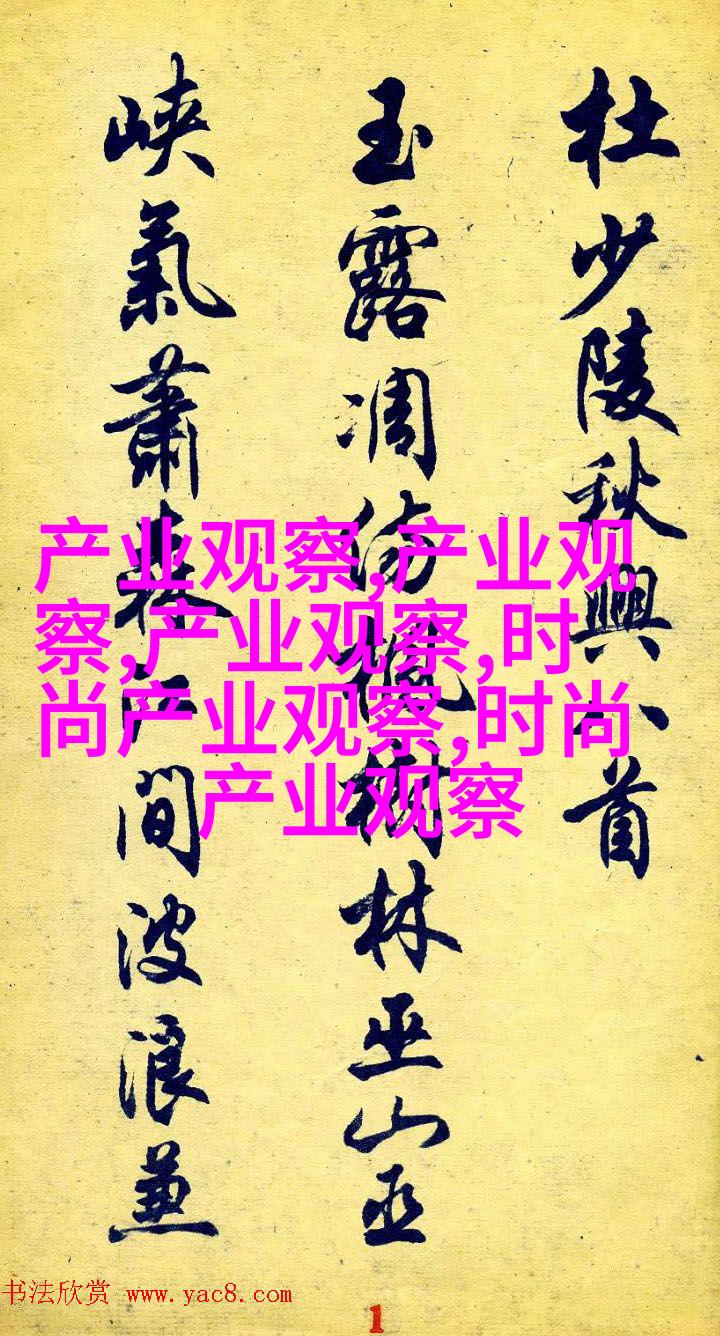 杜少陵秋興八首
玉露凋傷楓樹林巫山巫
峽氣蕭森江間波浪兼
产业观察,产业观
察,产业观察,时
尚产业观察,时尚
产业观察
书法欣赏 www.yac8.com
1